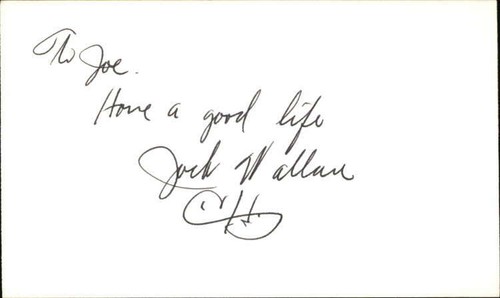 To Joe.
Have a good life
Jack Wallace